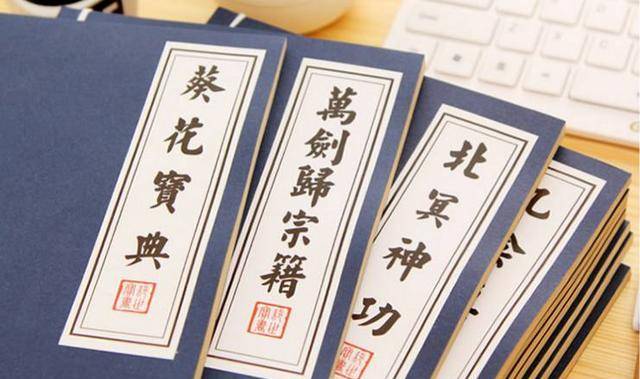 葵花寶典
萬劍歸宗籍
北冥神功
九